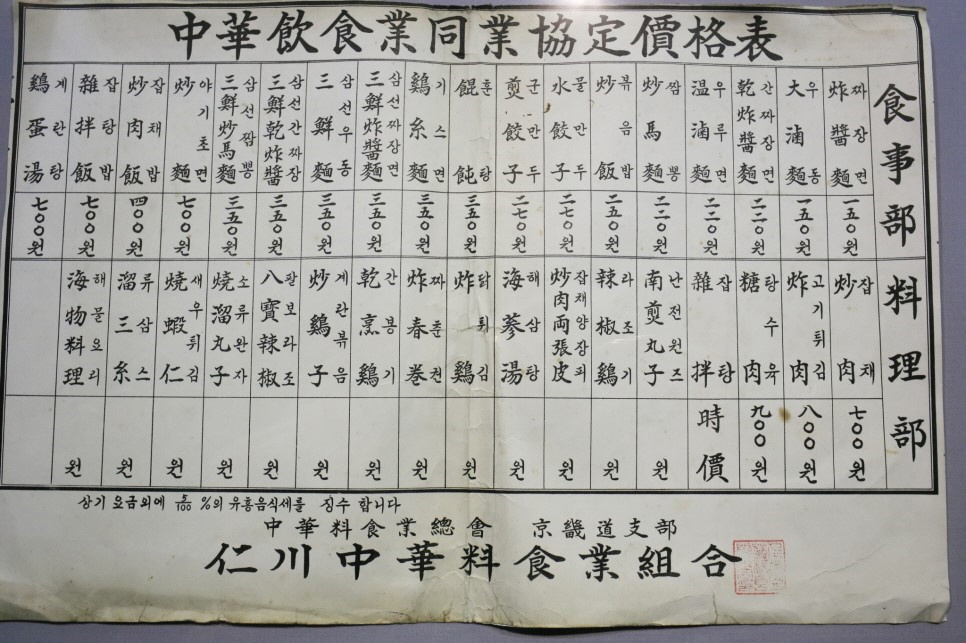 中華飲食業同業協定價格表
食事部
炸醬麵 짜장면 一五〇원
大滷麵 우동 一五〇원
乾炸醬麵 간짜장면 二二〇원
温滷麵 우루면 二二〇원
炒馬麵 짬뽕 二二〇원
炒飯 볶음밥 二五〇원
水餃子 물만두 二七〇원
煎餃子 군만두 二七〇원
餛飩 훈탕 三五〇원
鷄糸麵 기스면 三五〇원
三鮮炸醬麵 삼선짜장면 三五〇원
三鮮麵 삼선우동 三五〇원
三鮮乾炸醬 삼선간짜장 三五〇원
三鮮炒馬麵 삼선짬뽕 三五〇원
炒麵 야기초면 七〇〇원
炒肉飯 잡채밥 四〇〇원
雜拌飯 잡탕밥 七〇〇원
鷄蛋湯 계란탕 七〇〇원
料理部
炒肉 잡채 七〇〇원
炸肉 고기튀김 八〇〇원
糖肉 탕수육 九〇〇원
雜拌 잡탕 時價
南煎丸子 난전원즈 원
辣椒鷄 라조기 원
炒肉両張皮 잡채양장피 원
海蔘湯 해삼탕 원
炸鷄 닭튀김 원
炸春巻 짜춘권 원
乾烹鷄 간봉기 원
炒鷄子 계란볶음 원
八寶辣椒 팔보라조 원
燒溜丸子 소류완자 원
燒蝦仁 새우튀김 원
溜三糸 류삼스 원
海物料理 해물요리 원
상기 요금외에 5/100 %의 유흥음식세를 징수 합니다
中華料食業總會 京畿道支部
仁川中華料食業組合